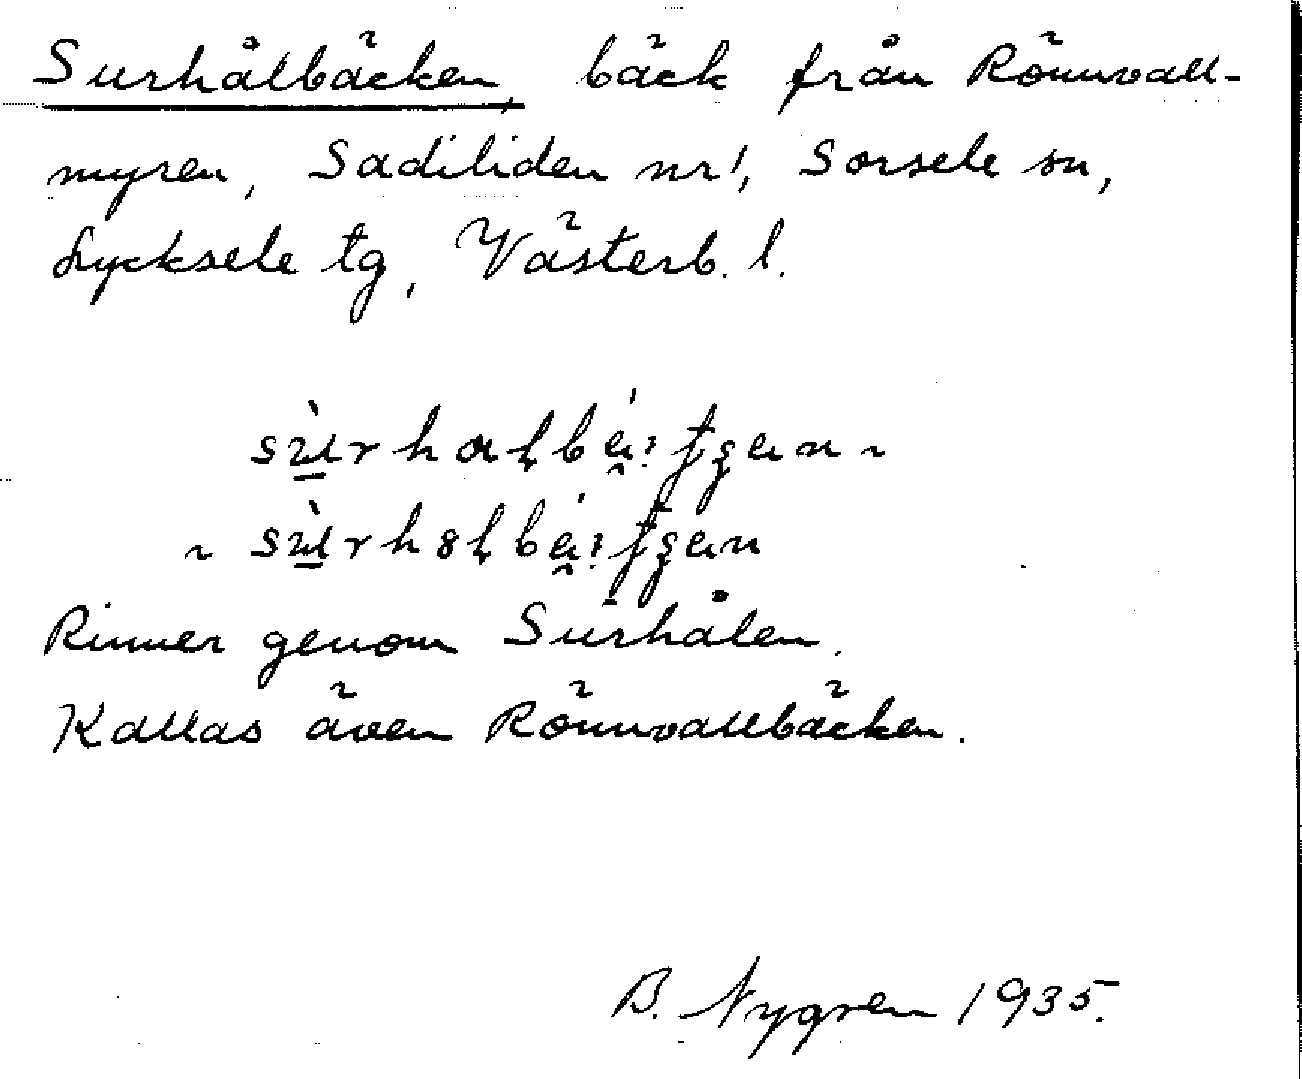 Surhålbäcken, bäck från Rönnvall-
myren, Sadiliden nr 1, Sorsele sn,
Lycksele tg, Västerb. l.
Rinner genom Surhålen.
Kallas även Rönnvallbäcken.
B. Nygren 1935.